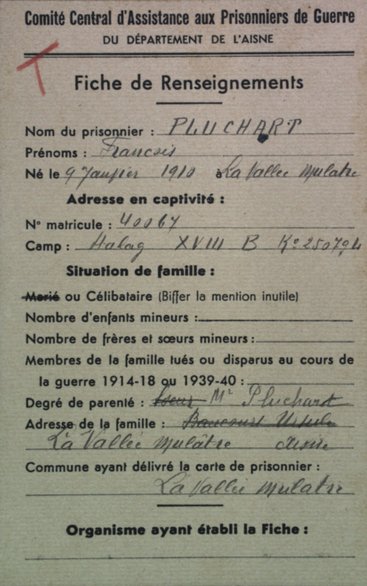 Comité Central d'Assistance aux Prisonniers de Guerre
DU DÉPARTEMENT DE L'AISNE
T
Fiche de Renseignements
Nom du prisonnier : PLUCHART
Prénoms : Francois
Né le 9 Janvier 1910 à La Vallée Mulatre
Adresse en captivité :
N° matricule : 40067
Camp : Halag XVIII B K° 250794
Situation de famille :
Marié ou Célibataire (Biffer la mention inutile)
Nombre d'enfants mineurs :
Nombre de frères et sœurs mineurs :
Membres de la famille tués ou disparus au cours de
la guerre 1914-18 ou 1939-40 :
Degré de parenté : Soeur Mr Pluchart
Adresse de la famille : Ursule
La Vallée Mulâtre Aisne
Commune ayant délivré la carte de prisonnier :
La Vallée Mulatre
Organisme ayant établi la Fiche :